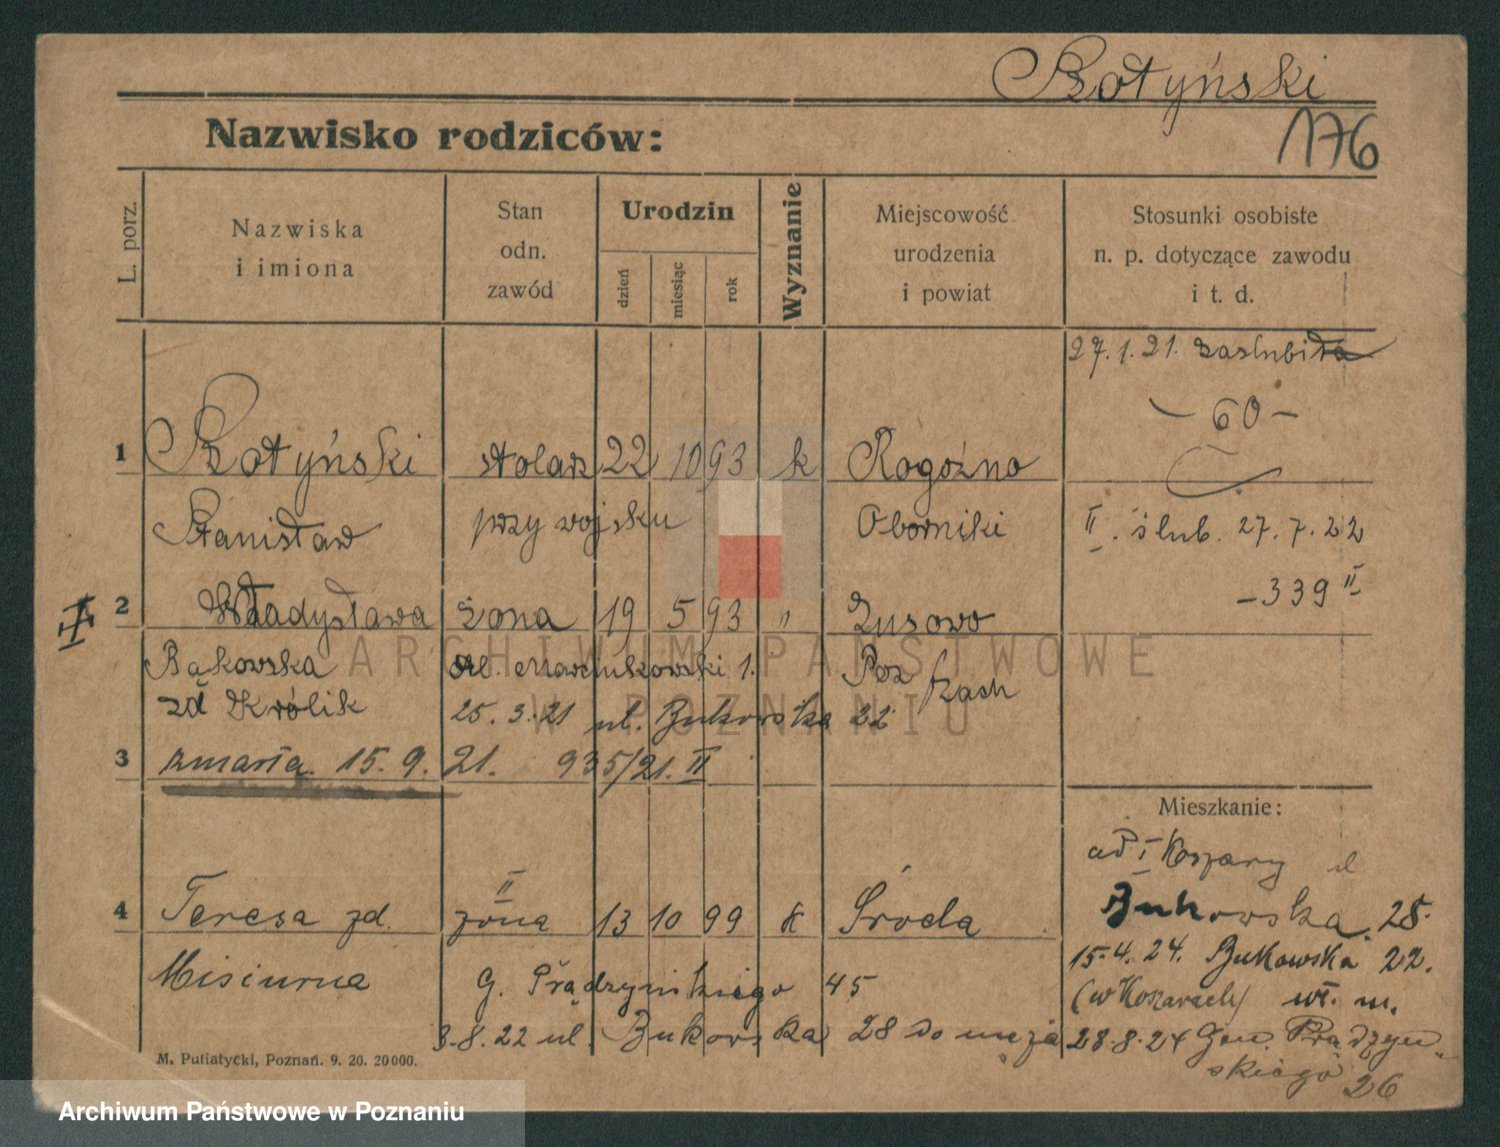 Rotyński
176
Nazwisko rodziców:
L. porz.
Nazwiska
i imiona
Stan
odn.
zawód
Urodzin
dzień
miesiąc
rok
Wyznanie
Miejscowość
urodzenia
i powiat
Stosunki osobiste
n. p. dotyczące zawodu
i t. d.
27.1.21. zaslubiła
- 60 -
1 Rotyński stolarz 22 10 93 k Rogoźno
Stanisław przy wojsku Oborniki
II. ślub. 27.7.22
- 339 II
2 Władysława żona 19 5 93 " Zusowo
Bąkowska ul. 1. Poz
zd Królik 25.3.21 ul. Bukowska 22
3 zmarła 15.9.21. 935/21. II
Mieszkanie:
od I Koszary ul
Bukowska 28.
4 Teresa zd. II żona 13 10 99 k Środa
15.4.24. Bukowska 22.
Misiurna G. Prądzyńskiego 45
(w Koszarach) wł. m.
3.8.22 ul. Bukowska 28 do męża
28.8.24 Gen. Prądzyń-
skiego 26
M. Putiatycki, Poznań. 9. 20. 20000.
ARCHIWUM PAŃSTWOWE
W POZNANIU
Archiwum Państwowe w Poznaniu